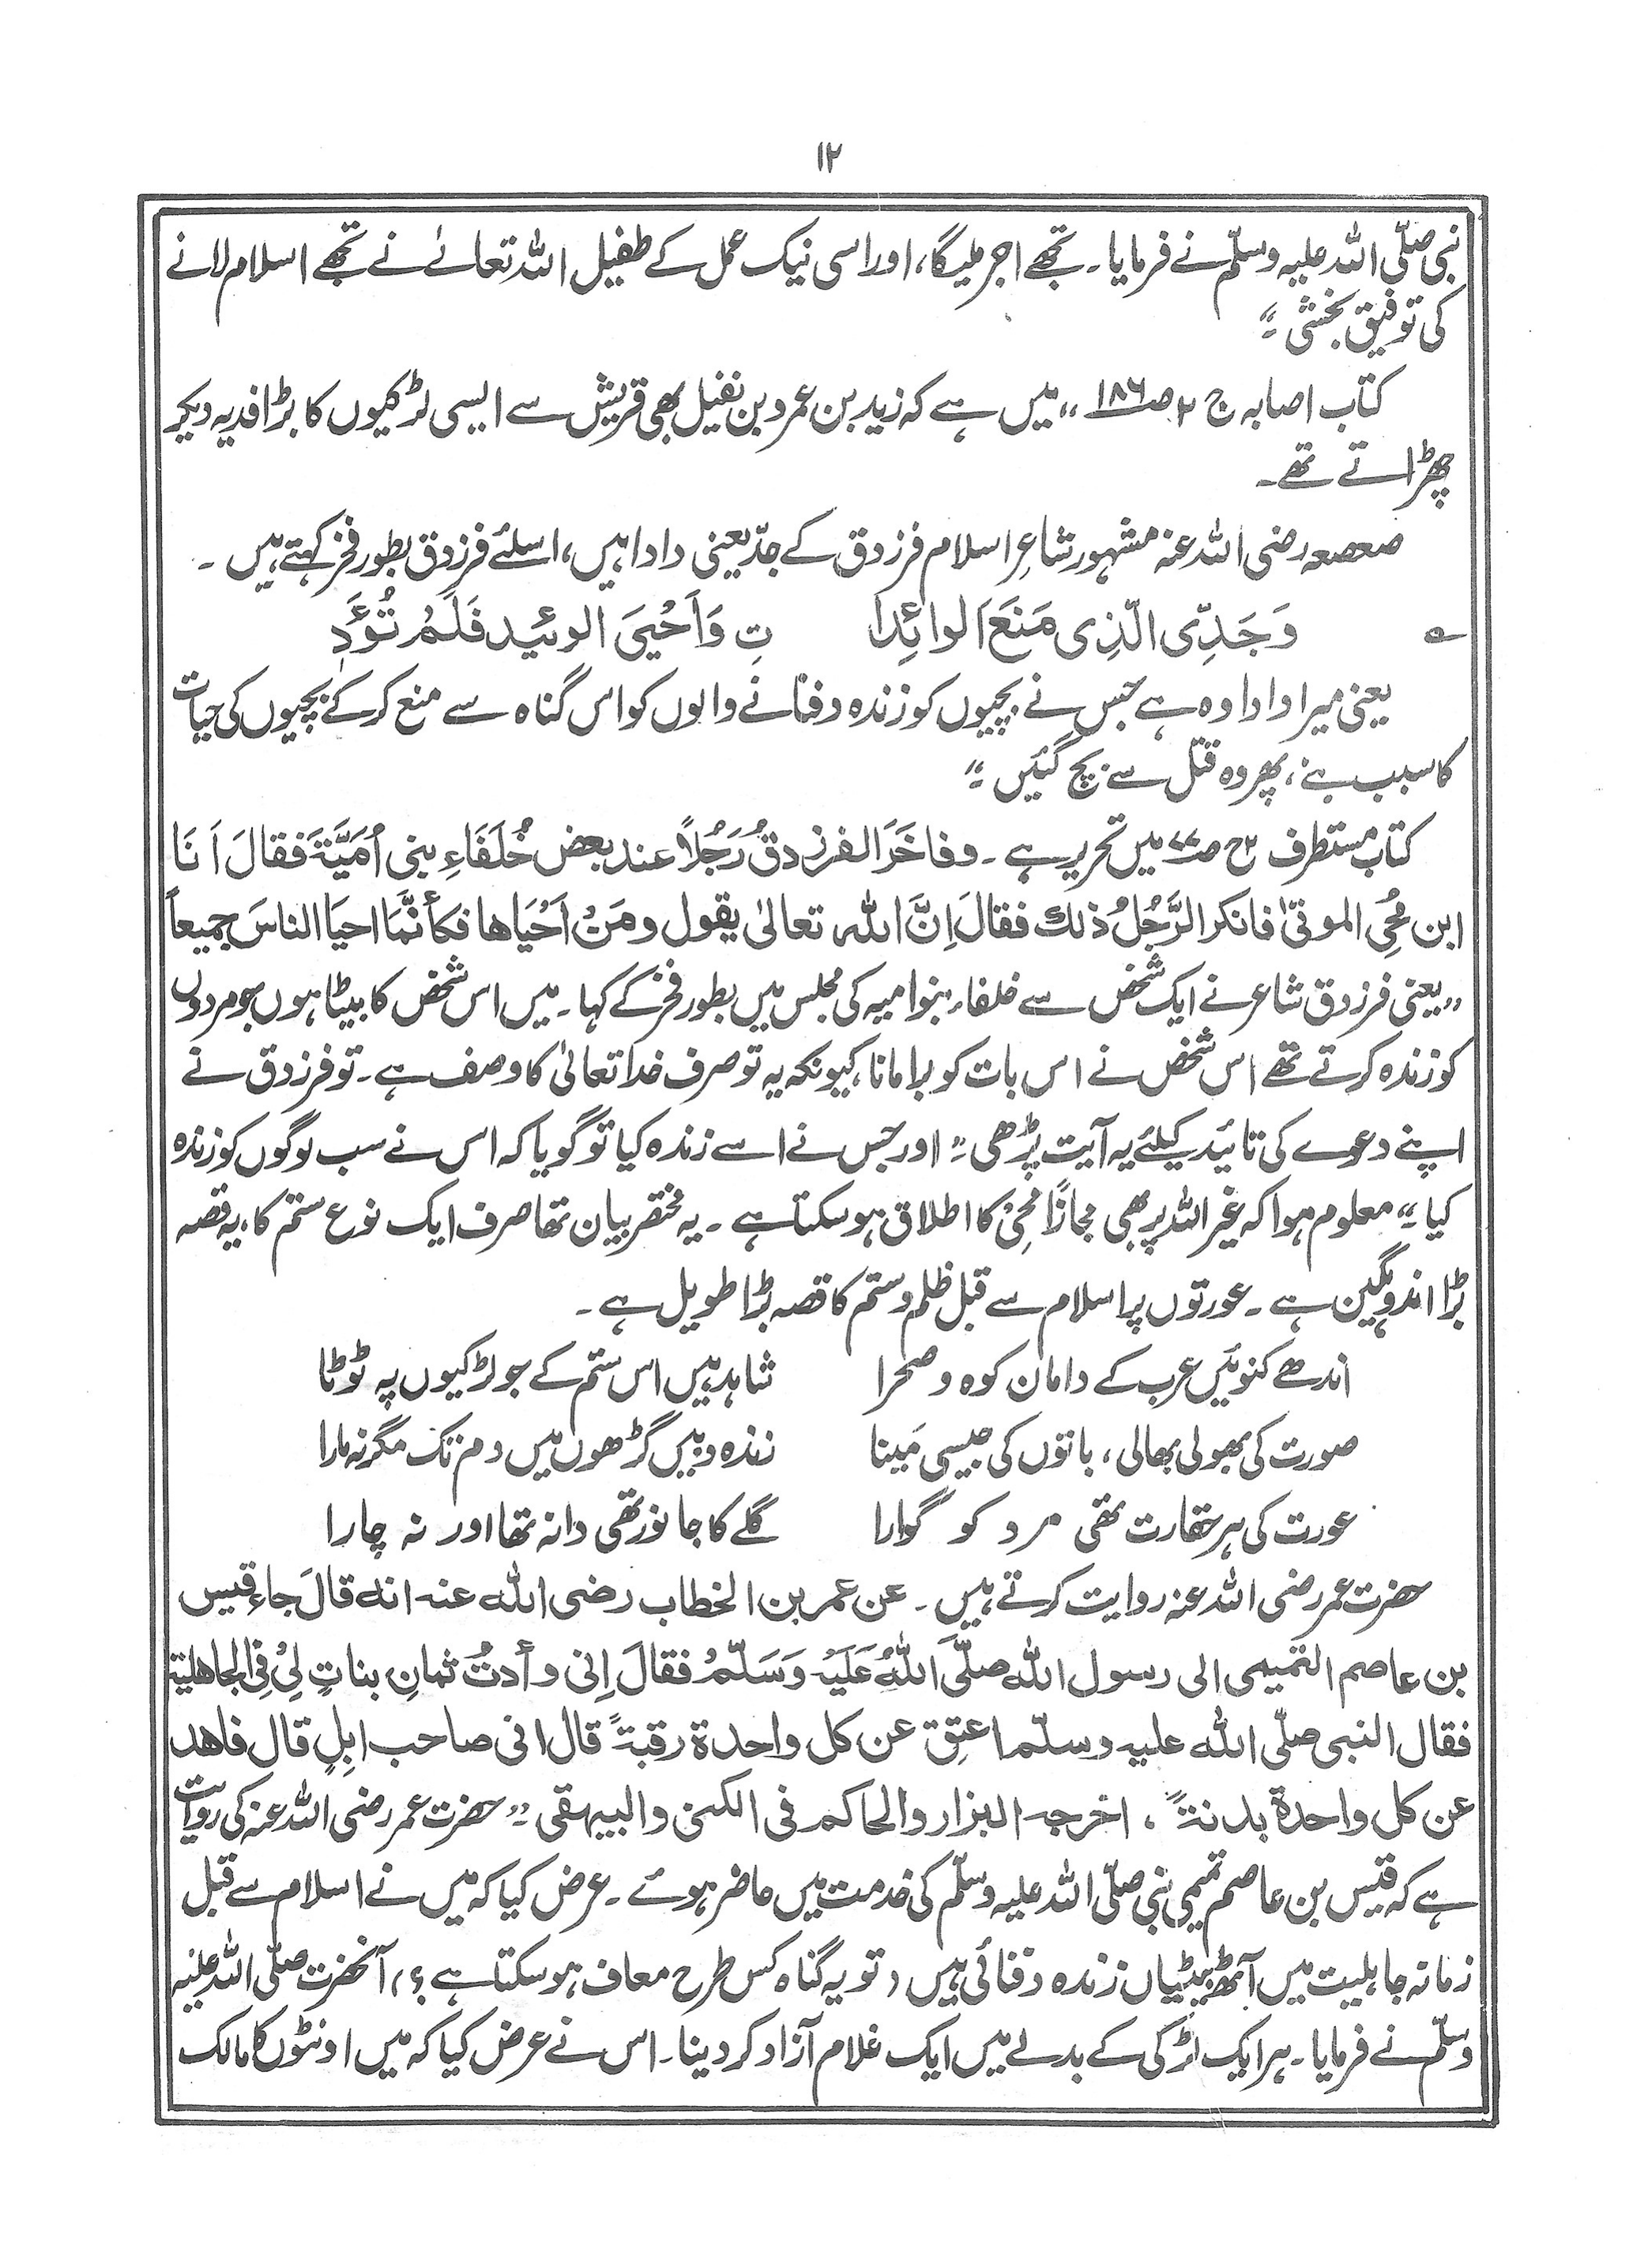 ۱۲
نبی صلّی اللہ علیہ وسلّم نے فرمایا۔ تجھے اجر ملیگا، اور اسی نیک عمل کے طفیل اللہ تعالےٰ نے تجھے اسلام لانے
کی توفیق بخشی ۔"
کتاب اصابہ ج ۲ ص۱۸۶ "میں ہے کہ زید بن عمرو بن نفیل بھی قریش سے ایسی لڑکیوں کا بڑا فدیہ دیکر
چھڑاتے تھے۔
صعصعہ رضی اللہ عنہ مشہور شاعرِ اسلام فرزدق کے جدّ یعنی دادا ہیں، اسلئے فرزدق بطور فخر کہتے ہیں ۔
؎ وَجَدِّی الّذِی مَنَعَ الوائِدا تِ وَاَحْیَی الوئید فَلَمْ تُوْءَدِ
یعنی میرا دادا وہ ہے جس نے بچیوں کو زندہ دفنانے والوں کو اس گناہ سے منع کرکے بچیوں کی حیات
کا سبب بنے، پھر وہ قتل سے بچ گئیں ۔"
کتاب مستطرف ج۲ ص۷۷ میں تحریر ہے ۔ وفاخَرَ الفرزدقُ رَجُلاً عند بعض خُلَفَاءِ بنی اُمَیَّۃَ فقالَ اَنَا
ابن مُحْیِ الموتیٰ فانکر الرَّجُلُ ذلک فقالَ اِنَّ اللہ تعالیٰ یقول ومَنْ اَحْیَاھا فکأنَّمَا احیَا الناسَ جمیعاً
"یعنی فرزدق شاعر نے ایک شخص سے خلفاء بنوامیہ کی مجلس میں بطور فخر کے کہا۔ میں اس شخص کا بیٹا ہوں جو مردوں
کو زندہ کرتے تھے اس شخص نے اس بات کو برا مانا، کیونکہ یہ تو صرف خدا تعالیٰ کا وصف ہے۔ تو فرزدق نے
اپنے دعوے کی تائید کیلئے یہ آیت پڑھی ۔" اور جس نے اسے زندہ کیا تو گویا کہ اس نے سب لوگوں کو زندہ
کیا ۔" معلوم ہوا کہ غیر اللہ پر بھی مجازًا محیْ کا اطلاق ہوسکتا ہے ۔ یہ مختصر بیان تھا صرف ایک نوع ستم کا، یہ قصہ
بڑا اندوہگین ہے ۔ عورتوں پر اسلام سے قبل ظلم و ستم کا قصہ بڑا طویل ہے ۔
اندھے کنوئیں عرب کے دامان کوہ و صحرا شاہد ہیں اس ستم کے جو لڑکیوں پہ ٹوٹا
صورت کی بھولی بھالی، باتوں کی جیسی مَینا زندہ دبیں گڑھوں میں دم تک مگر نہ مارا
عورت کی ہر حقارت تھی مرد کو گوارا گلے کا جانور تھی دانہ تھا اور نہ چارا
حضرت عمر رضی اللہ عنہ روایت کرتے ہیں ۔ عن عمر بن الخطاب رضی اللہ عنہ انہ قالَ جاء قیس
بن عاصم التمیمی الی رسول اللہ صلَّی اللہُ عَلَیْہ وَسَلّمْ فقالَ اِنی وأدتُ ثمانِ بناتٍ لِیْ فی الجاھلیۃ
فقال النبی صلّی اللہ علیہ وسلّم اعتِق عن کل واحدۃ رقبۃً قال انی صاحب اِبِلٍ قال فاھد
عن کل واحدۃ بدنۃً ، اخرجہ البزار والحاکم فی الکنی والبیہقی "حضرت عمر رضی اللہ عنہ کی روایت
ہے کہ قیس بن عاصم تمیمی نبی صلّی اللہ علیہ وسلّم کی خدمت میں حاضر ہوئے ۔ عرض کیا کہ میں نے اسلام سے قبل
زمانہ جاہلیت میں آٹھ بیٹیاں زندہ دفنائی ہیں (تو یہ گناہ کس طرح معاف ہوسکتا ہے؟) آنحضرت صلّی اللہ علیہ
وسلّم نے فرمایا۔ ہر ایک لڑکی کے بدلے میں ایک غلام آزاد کر دینا۔ اس نے عرض کیا کہ میں اونٹوں کا مالک